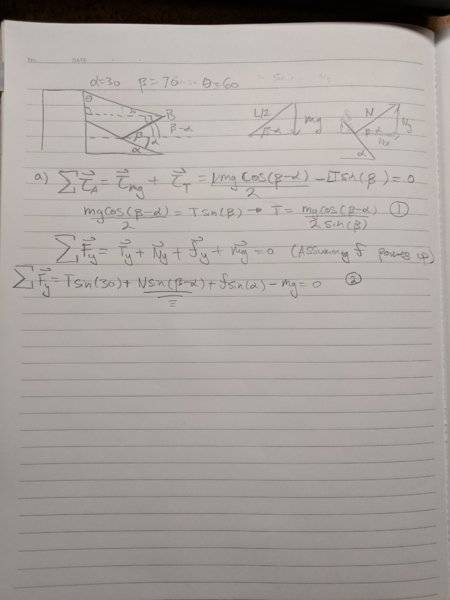 No. DATE
α=30 β=70 θ=60
θ
B
β β-α
α
α
L/2 mg
β-α
N Ny
β-α
Nx
α
a) ∑τ⃗_A = τ⃗_mg + τ⃗_T = Lmg cos(β-α)/2 - LT sin(β) = 0
mg cos(β-α)/2 = T sin(β) → T = mg cos(β-α)/2 sin(β) ①
∑F⃗_y = T⃗_y + N⃗_y + f⃗_y + m⃗g = 0 (Assuming f points up)
∑F⃗_y = T sin(30) + N sin(β-α) + f sin(α) - mg = 0 ②